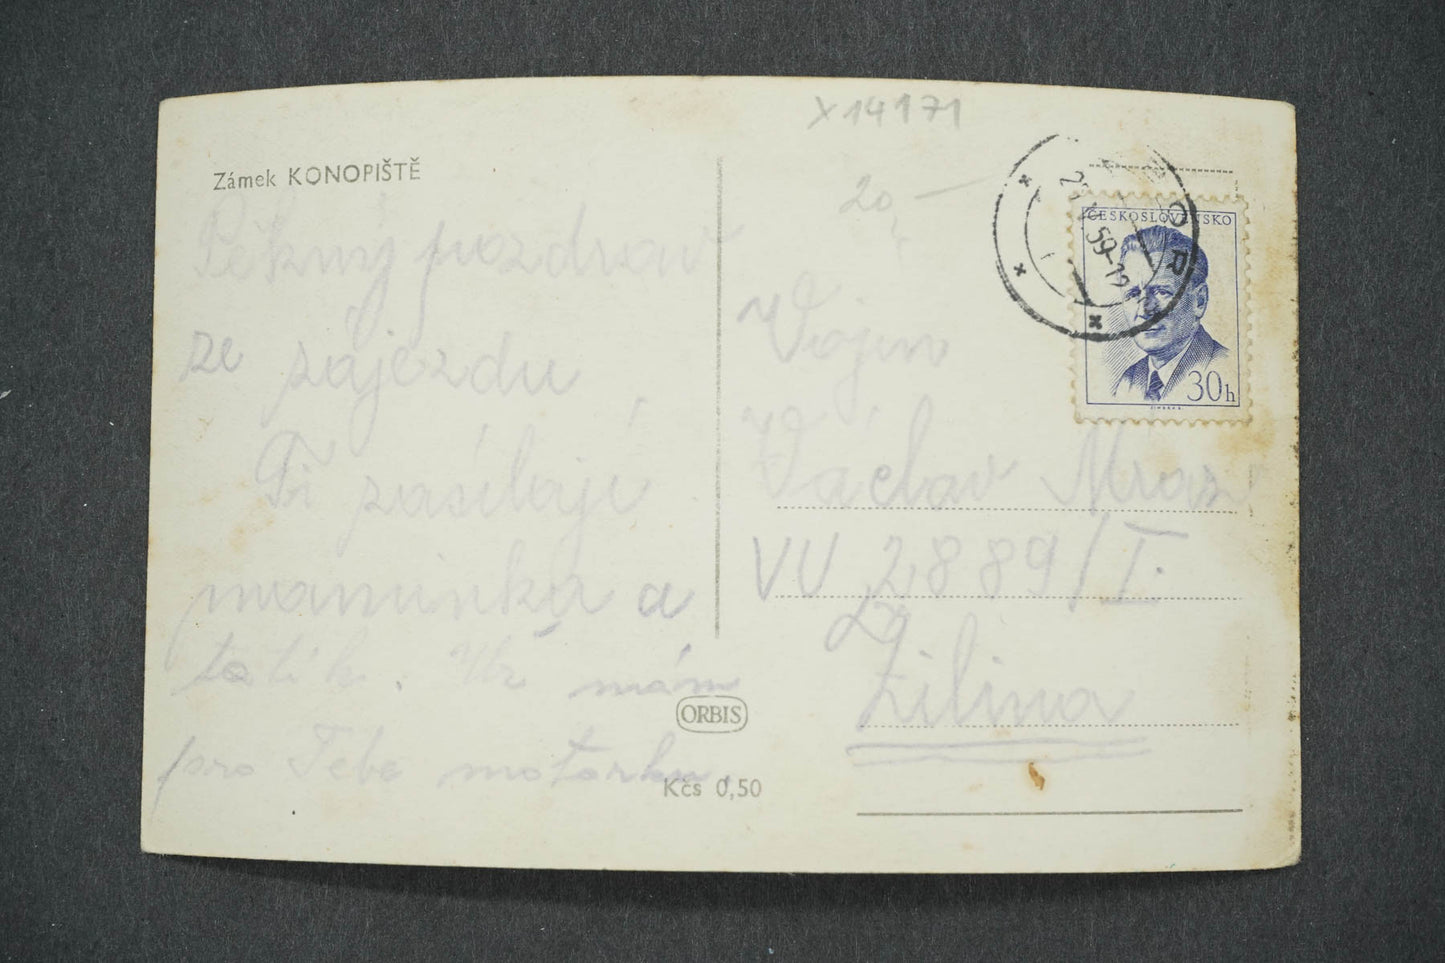 x14171
Zámek KONOPIŠTĚ
20,-
ČESKOSLOVENSKO
30h
Pěkný pozdrav
ze zájezdu
Ti zasílají
maminka a
tatík. Už mám
pro Tebe motorku.
Vojín
Václav Mráz
VU 2889/I.
Žilina
ORBIS
Kčs 0,50